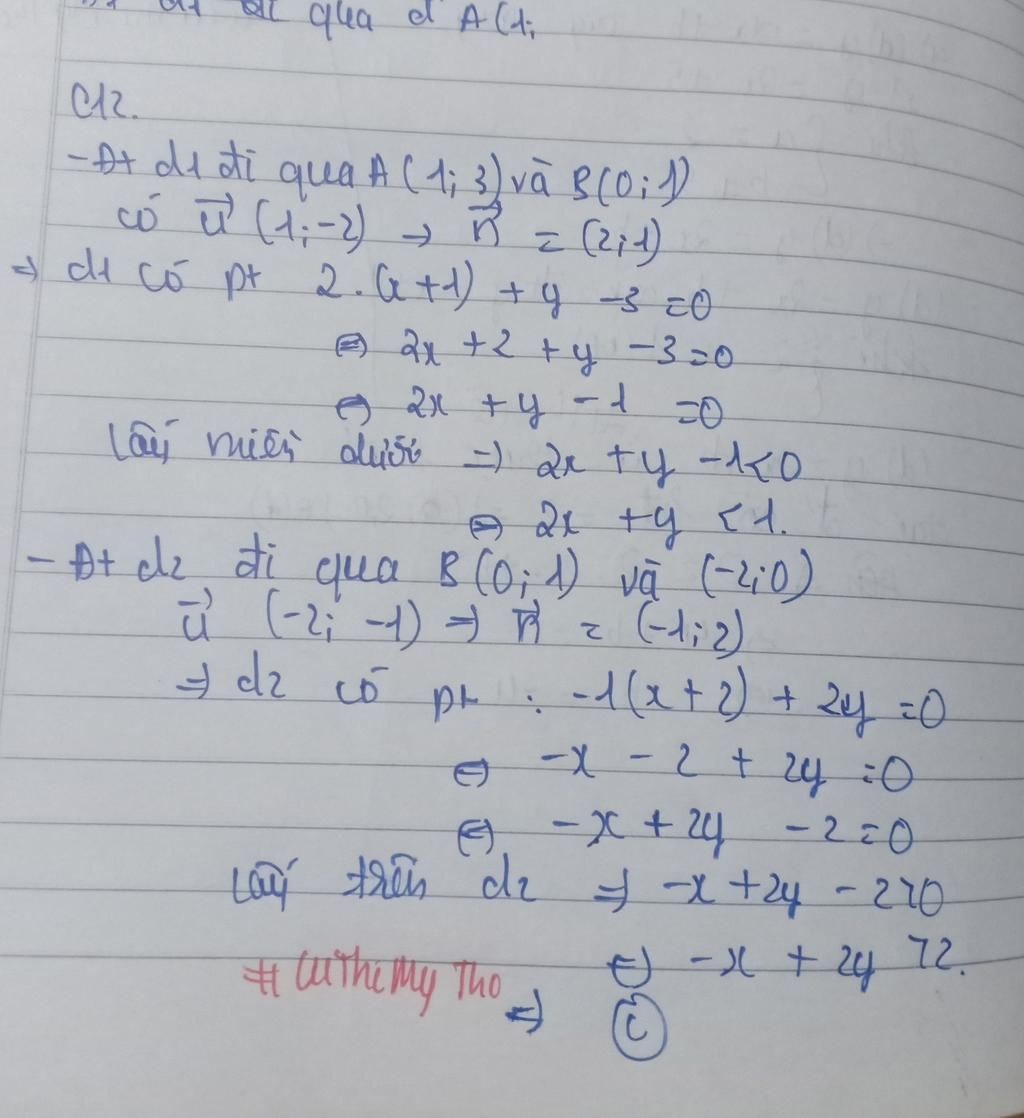 qua đ A(1;
C12.
- Đt d1 đi qua A(1; 3) và B(0; 1)
có u⃗ (1; -2) → n⃗ = (2; 1)
⇒ d1 có pt 2.(x+1) + y - 3 = 0
⇔ 2x + 2 + y - 3 = 0
⇔ 2x + y - 1 = 0
Lấy miền dưới ⇒ 2x + y - 1 < 0
⇔ 2x + y < 1.
- Đt d2 đi qua B(0; 1) và (-2; 0)
u⃗ (-2; -1) ⇒ n⃗ = (-1; 2)
⇒ d2 có pt : -1(x + 2) + 2y = 0
⇔ -x - 2 + 2y = 0
⇔ -x + 2y - 2 = 0
Lấy trên d2 ⇒ -x + 2y - 2 > 0
⇔ -x + 2y > 2.
# CuThiMy Tho
⇒ C